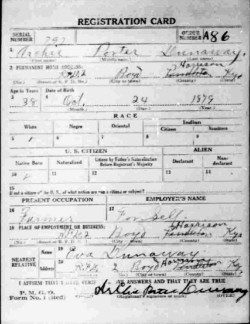 REGISTRATION CARD
SERIAL NUMBER 797 ORDER NUMBER A86
1 Archie Porter Dunaway
2 PERMANENT HOME ADDRESS:
R.F.D. 2 Boyd Harrison Ky
Age in Years Date of Birth
3 38 4 Oct. 24 1879
RACE
White Negro Oriental Indian
Citizen Noncitizen
5 6 7 8 9
U. S. CITIZEN ALIEN
Native Born Naturalized Citizen by Father's Naturalization Before Registrant's Majority Declarant Non-declarant
10 11 12 13 14
15 If not a citizen of the U. S., of what nation are you a citizen or subject?
PRESENT OCCUPATION EMPLOYER'S NAME
16 Farmer 17 For Self
18 PLACE OF EMPLOYMENT OR BUSINESS:
R.F.D. 2 Boyd Harrison Ky
NEAREST RELATIVE
Name 19 Eva Dunaway
Address 20 R.F.D. 2 Boyd Harrison Ky
I AFFIRM THAT I HAVE VERIFIED ABOVE ANSWERS AND THAT THEY ARE TRUE
P. M. G. O.
Form No. 1 (Red) Archie Porter Dunaway